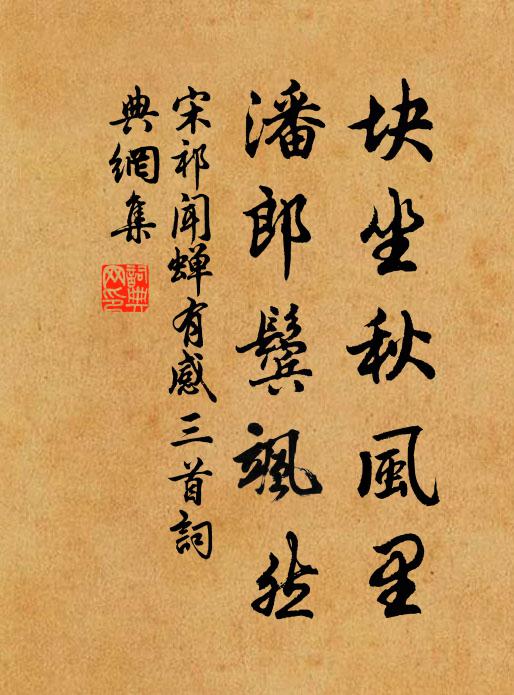 块坐秋風里
潘郎鬓颯然
宋祁闻蝉有感三首詞
典網集
詞典
网印